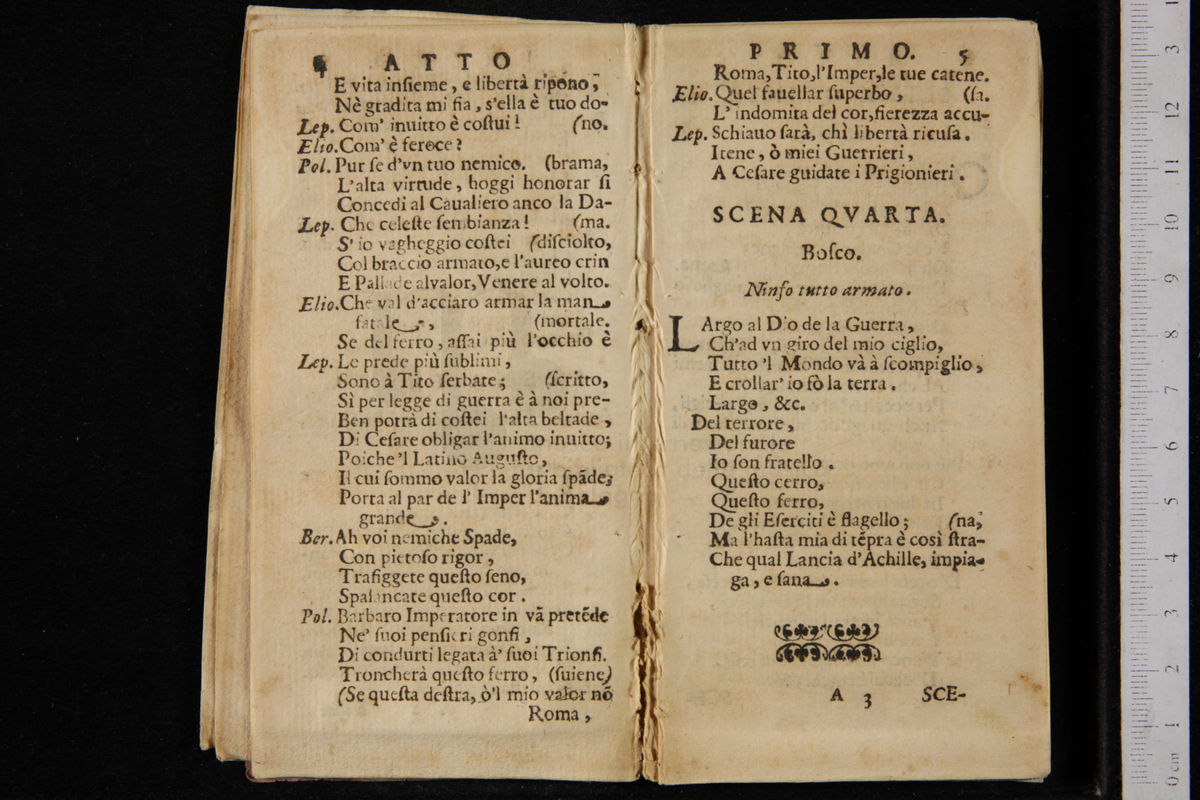 4 ATTO
E vita inſieme, e libertà ripono;
Nè gradita mi fia, s'ella è tuo do-
Lep. Com' inuitto è coſtui! (no.
Elio. Com' è feroce?
Pol. Pur ſe d'vn tuo nemico. (brama,
L'alta virtude, hoggi honorar ſi
Concedi al Caualiero anco la Da-
Lep. Che celeſte ſembianza! (ma.
S' io vagheggio coſtei (diſciolto,
Col braccio armato, e l'aureo crin
E Pallade alvalor, Venere al volto.
Elio. Che val d'acciaro armar la man
fatale, (mortale.
Se del ferro, aſſai più l'occhio è
Lep. Le prede più ſublimi,
Sono à Tito ſerbate; (ſcritto,
Sì per legge di guerra è à noi pre-
Ben potrà di coſtei l'alta beltade,
Di Ceſare obligar l'animo inuitto;
Poiche 'l Latino Auguſto,
Il cui ſommo valor la gloria ſpãde;
Porta al par de l' Imper l'anima
grande.
Ber. Ah voi nemiche Spade,
Con pietoſo rigor,
Trafiggete queſto ſeno,
Spalancate queſto cor.
Pol. Barbaro Imperatore in vã pretẽde
Ne' ſuoi penſieri gonfi,
Di condurti legata à' ſuoi Trionfi.
Troncherà queſto ferro, (ſuiene)
(Se queſta deſtra, ò'l mio valor nõ
Roma,
PRIMO. 5
Roma, Tito, l'Imper, le tue catene.
Elio. Quel fauellar ſuperbo, (ſa.
L' indomita del cor, fierezza accu-
Lep. Schiauo ſarà, chì libertà ricuſa.
Itene, ò miei Guerrieri,
A Ceſare guidate i Prigionieri.
SCENA QVARTA.
Boſco.
Ninfo tutto armato.
LArgo al Dio de la Guerra,
Ch'ad vn giro del mio ciglio,
Tutto 'l Mondo và à ſcompiglio,
E crollar' io fò la terra.
Largo, &c.
Del terrore,
Del furore
Io ſon fratello.
Queſto cerro,
Queſto ferro,
De gli Eſerciti è flagello; (na,
Ma l'haſta mia di tẽpra è così ſtra-
Che qual Lancia d'Achille, impia-
ga, e ſana.
A 3 SCE-
0 cm 1 2 3 4 5 6 7 8 9 10 11 12 13